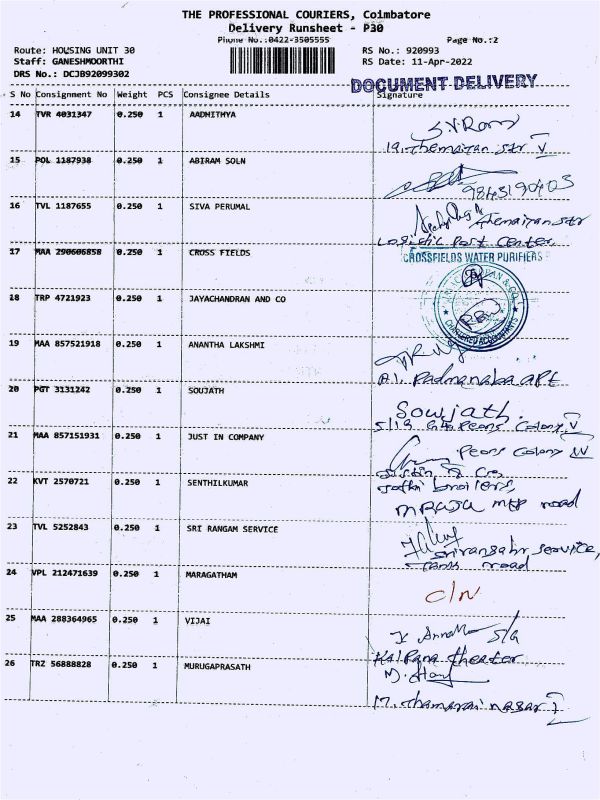 THE PROFESSIONAL COURIERS, Coimbatore
Delivery Runsheet - P30
Phone No.:0422-3505555
Page No.:2
Route: HOUSING UNIT 30
RS No.: 920993
Staff: GANESHMOORTHI
RS Date: 11-Apr-2022
DRS No.: DCJB92099302
DOCUMENT DELIVERY
S No Consignment No Weight PCS Consignee Details Signature
14 TVR 4031347 0.250 1 AADHITHYA
S.V.Ram
19, Themaiyan str V
15 POL 1187938 0.250 1 ABIRAM SOLN
9843190403
16 TVL 1187655 0.250 1 SIVA PERUMAL
Themaiyan str
Logistic Post Center
17 MAA 290606858 0.250 1 CROSS FIELDS
CROSSFIELDS WATER PURIFIERS
18 TRP 4721923 0.250 1 JAYACHANDRAN AND CO
CHARTERED ACCOUNTANTS
19 MAA 857521918 0.250 1 ANANTHA LAKSHMI
A1, Padmanaba apt
20 PGT 3131242 0.250 1 SOUJATH
Soujath.
5/13 Peons Colony V
21 MAA 857151931 0.250 1 JUST IN COMPANY
Peons Colony IV
Justin & Co
22 KVT 2570721 0.250 1 SENTHILKUMAR
Jothi broilers,
mtp road
23 TVL 5252843 0.250 1 SRI RANGAM SERVICE
service,
Tank road
24 VPL 212471639 0.250 1 MARAGATHAM
C/N
25 MAA 288364965 0.250 1 VIJAI
Kalpana theater
26 TRZ 56888828 0.250 1 MURUGAPRASATH
M. Thamarai nagar